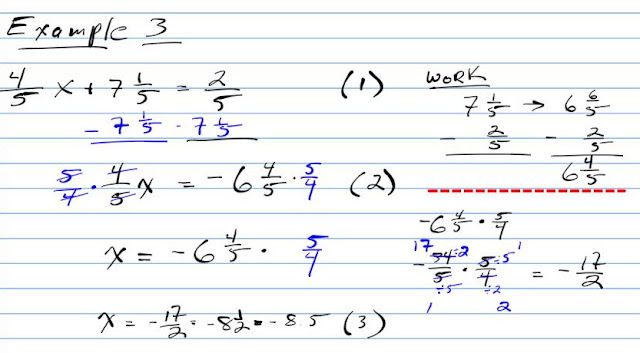 Example 3
4/5 x + 7 1/5 = 2/5 (1)
- 7 1/5 - 7 1/5
5/4 · 4/5 x = -6 4/5 · 5/4 (2)
x = -6 4/5 · 5/4
x = -17/2 = -8 1/2 = -8.5 (3)
WORK
7 1/5 → 6 6/5
- 2/5 - 2/5
6 4/5
-6 4/5 · 5/4
17 1
-34÷2/5÷5 · 5÷5/4÷2 = -17/2
1 2